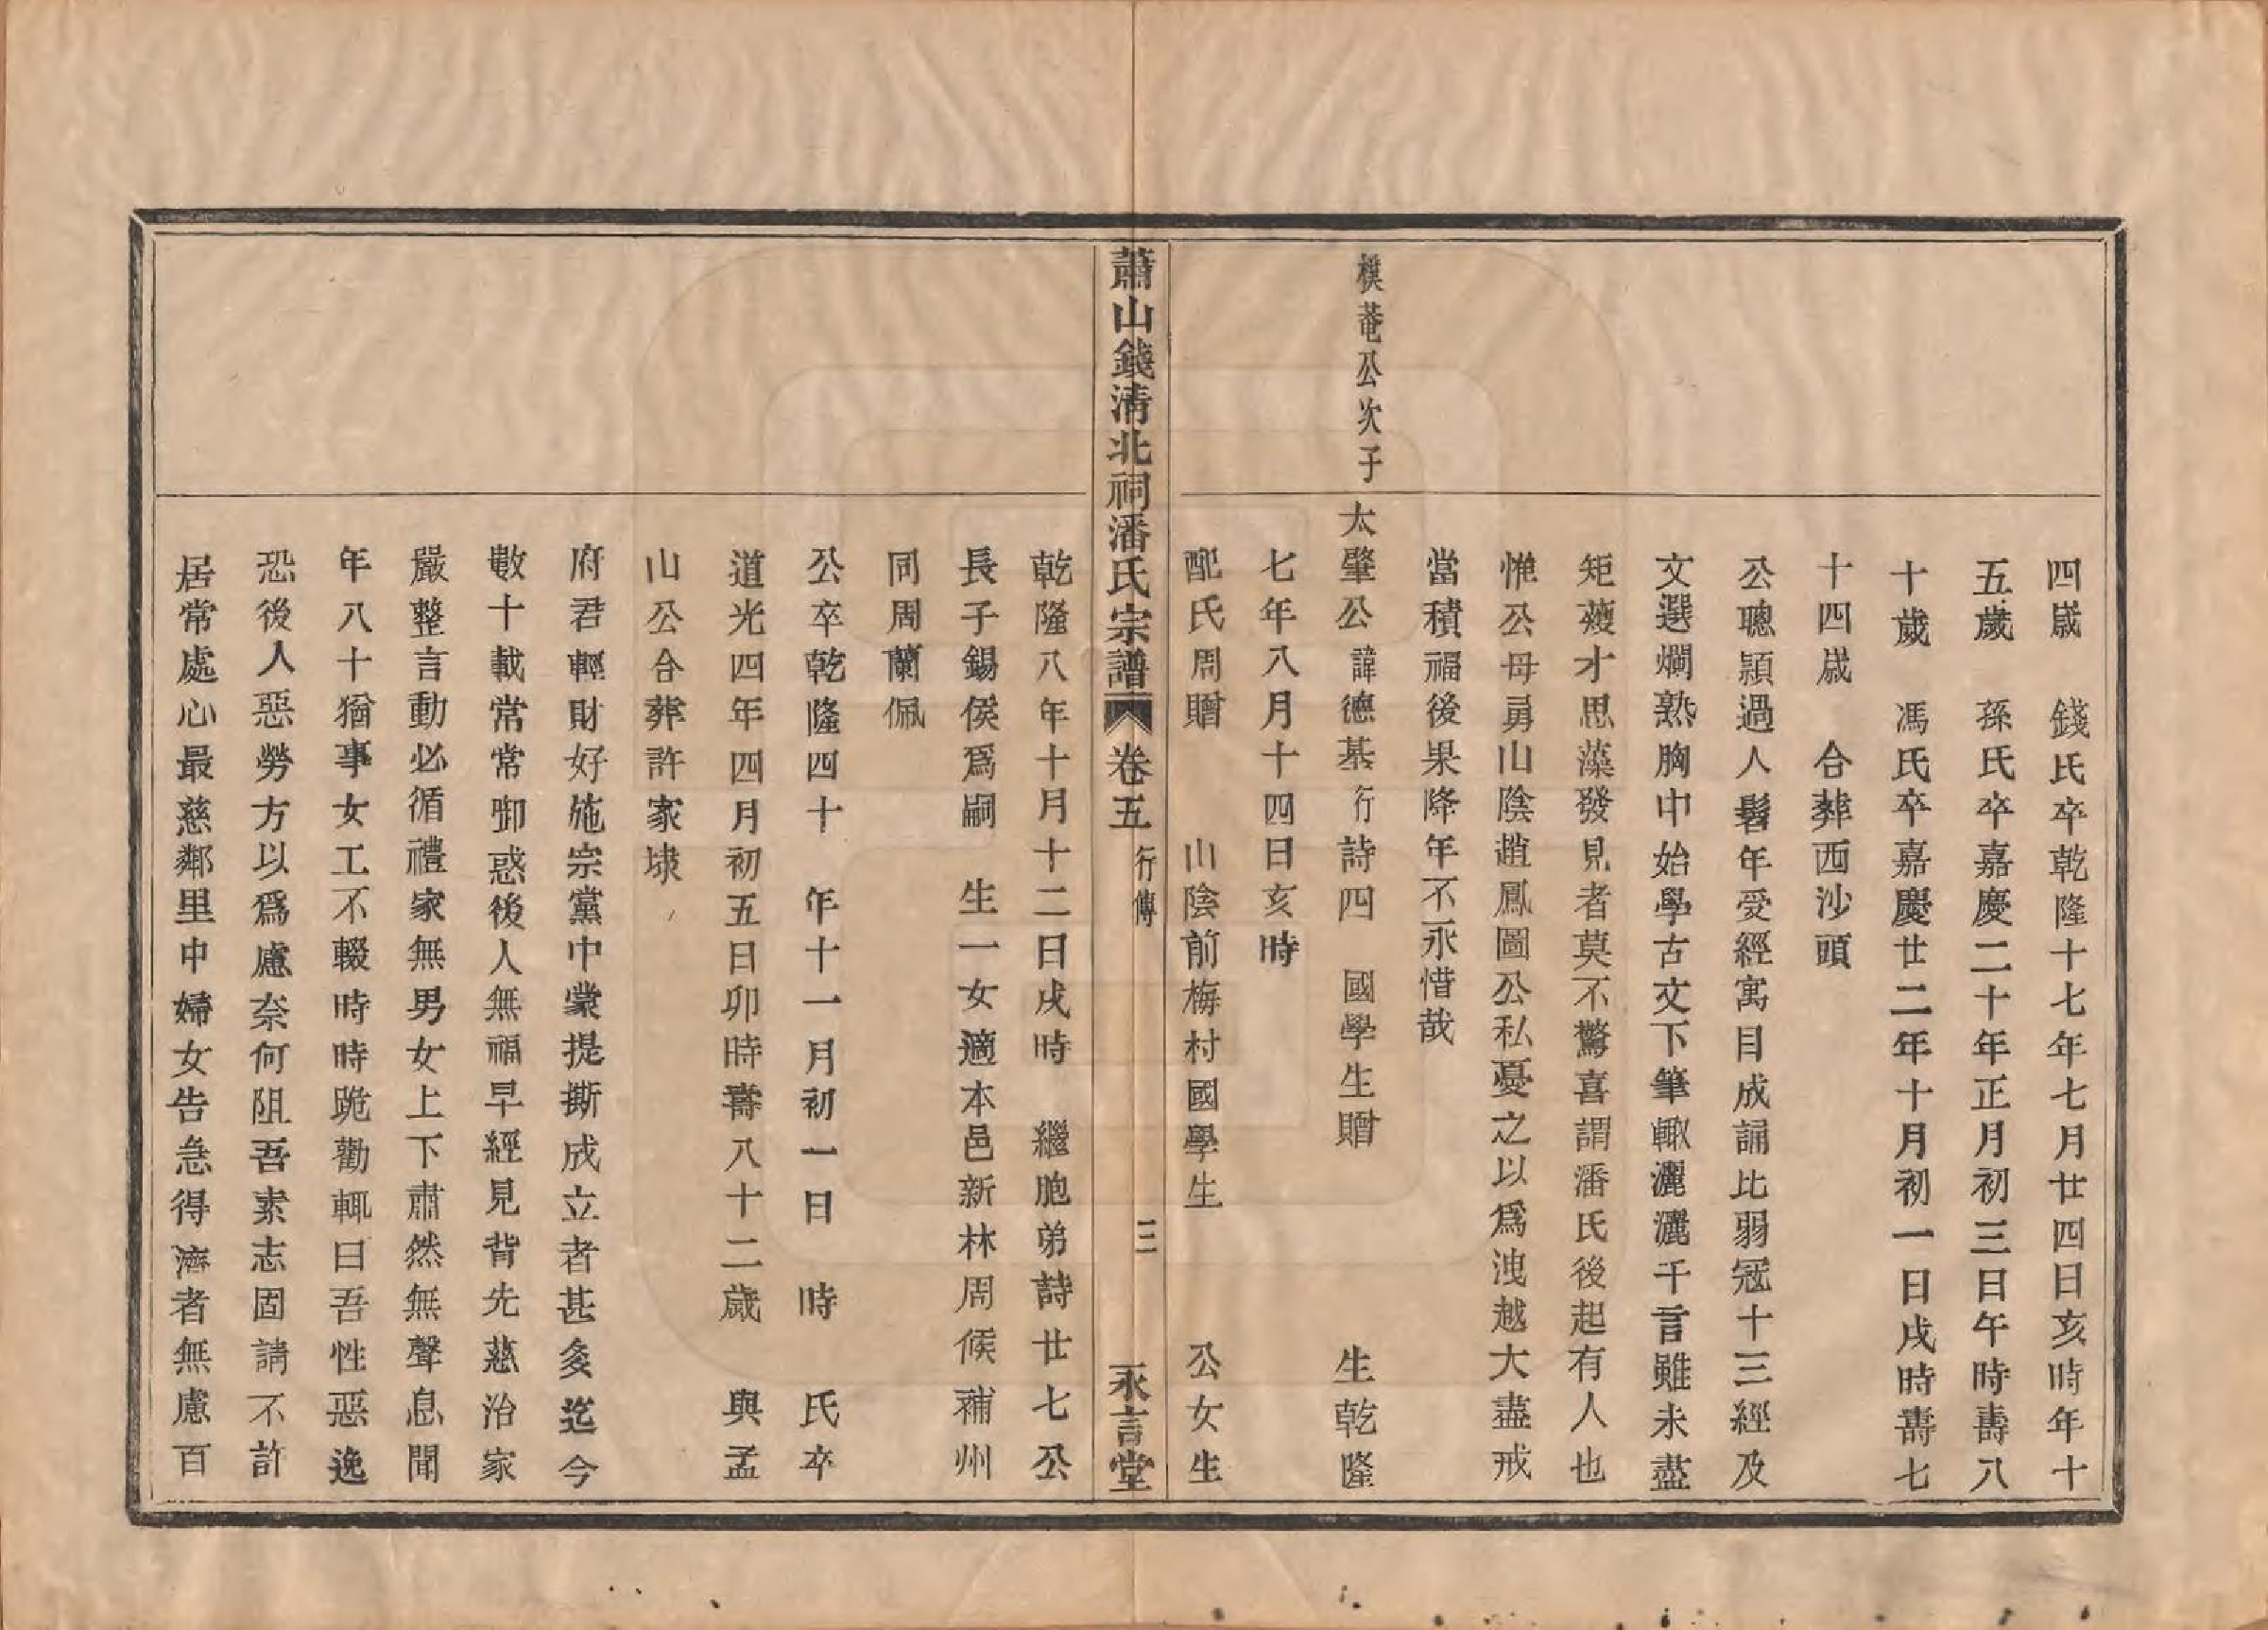 四歲　錢氏卒乾隆十七年七月廿四日亥時年十
五歲　孫氏卒嘉慶二十年正月初三日午時壽八
十歲　馮氏卒嘉慶廿二年十月初一日戌時壽七
十四歲　合葬西沙頭
公聰頴過人髫年受經寓目成誦比弱冠十三經及
文選爛熟胸中始學古文下筆輙灑灑千言雖未盡
矩薙才思藻發見者莫不驚喜謂潘氏後起有人也
惟公母舅山陰趙鳳圖公私憂之以爲洩越大盡戒
當積福後果降年不永惜哉
樸菴公次子
太肇公諱德基行詩四　國學生贈　生乾隆
七年八月十四日亥時
配氏周贈　山陰前梅村國學生　公女生
蕭山錢淸北祠潘氏宗譜　卷五　行傳　三　永言堂
乾隆八年十月十二日戌時　繼胞弟詩廿七公
長子錫侯爲嗣　生一女適本邑新林周候補州
同周蘭佩
公卒乾隆四十　年十一月初一日　時　氏卒
道光四年四月初五日卯時壽八十二歲　與孟
山公合葬許家埭
府君輕財好施宗黨中蒙提撕成立者甚多迄今
數十載常常卹惑後人無福早經見背先慈治家
嚴整言動必循禮家無男女上下肅然無聲息聞
年八十猶事女工不輟時時跪勸輒曰吾性惡逸
恐後人惡勞方以爲慮奈何阻吾素志固請不許
居常處心最慈鄰里中婦女告急得濟者無慮百